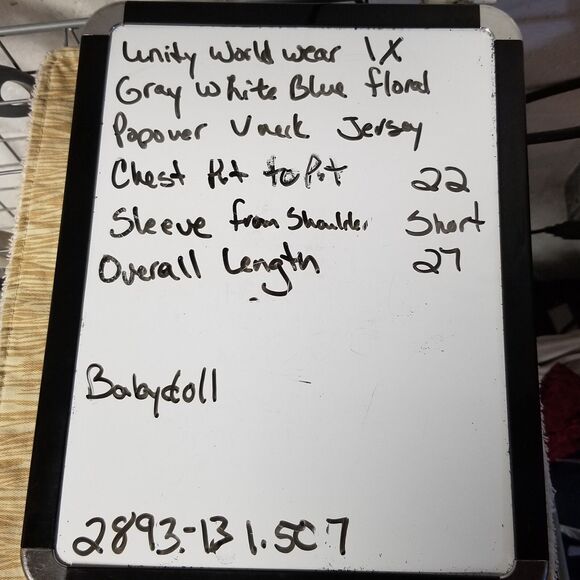 Unity World wear 1X
Gray White Blue floral
Popover Vneck Jersey
Chest Pit to Pit 22
Sleeve from Shoulder Short
Overall Length 27
Babydoll
2893-13 1.5C7